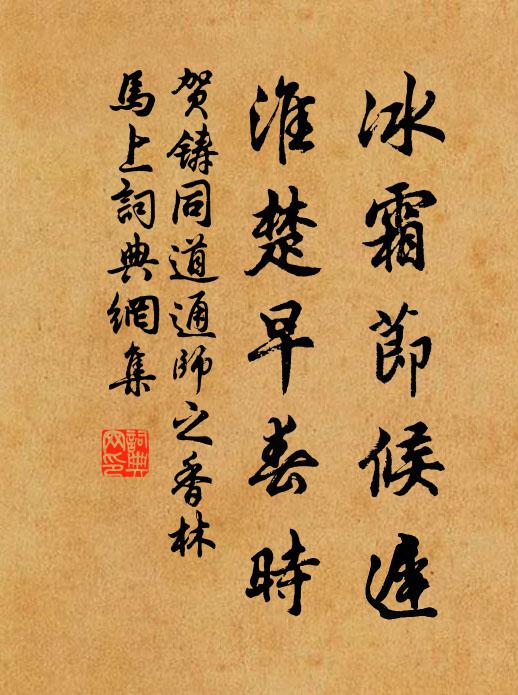 冰霜節候遲
淮楚早春時
贺鑄同道通師之香林
馬上詞典網集
詞典
网印